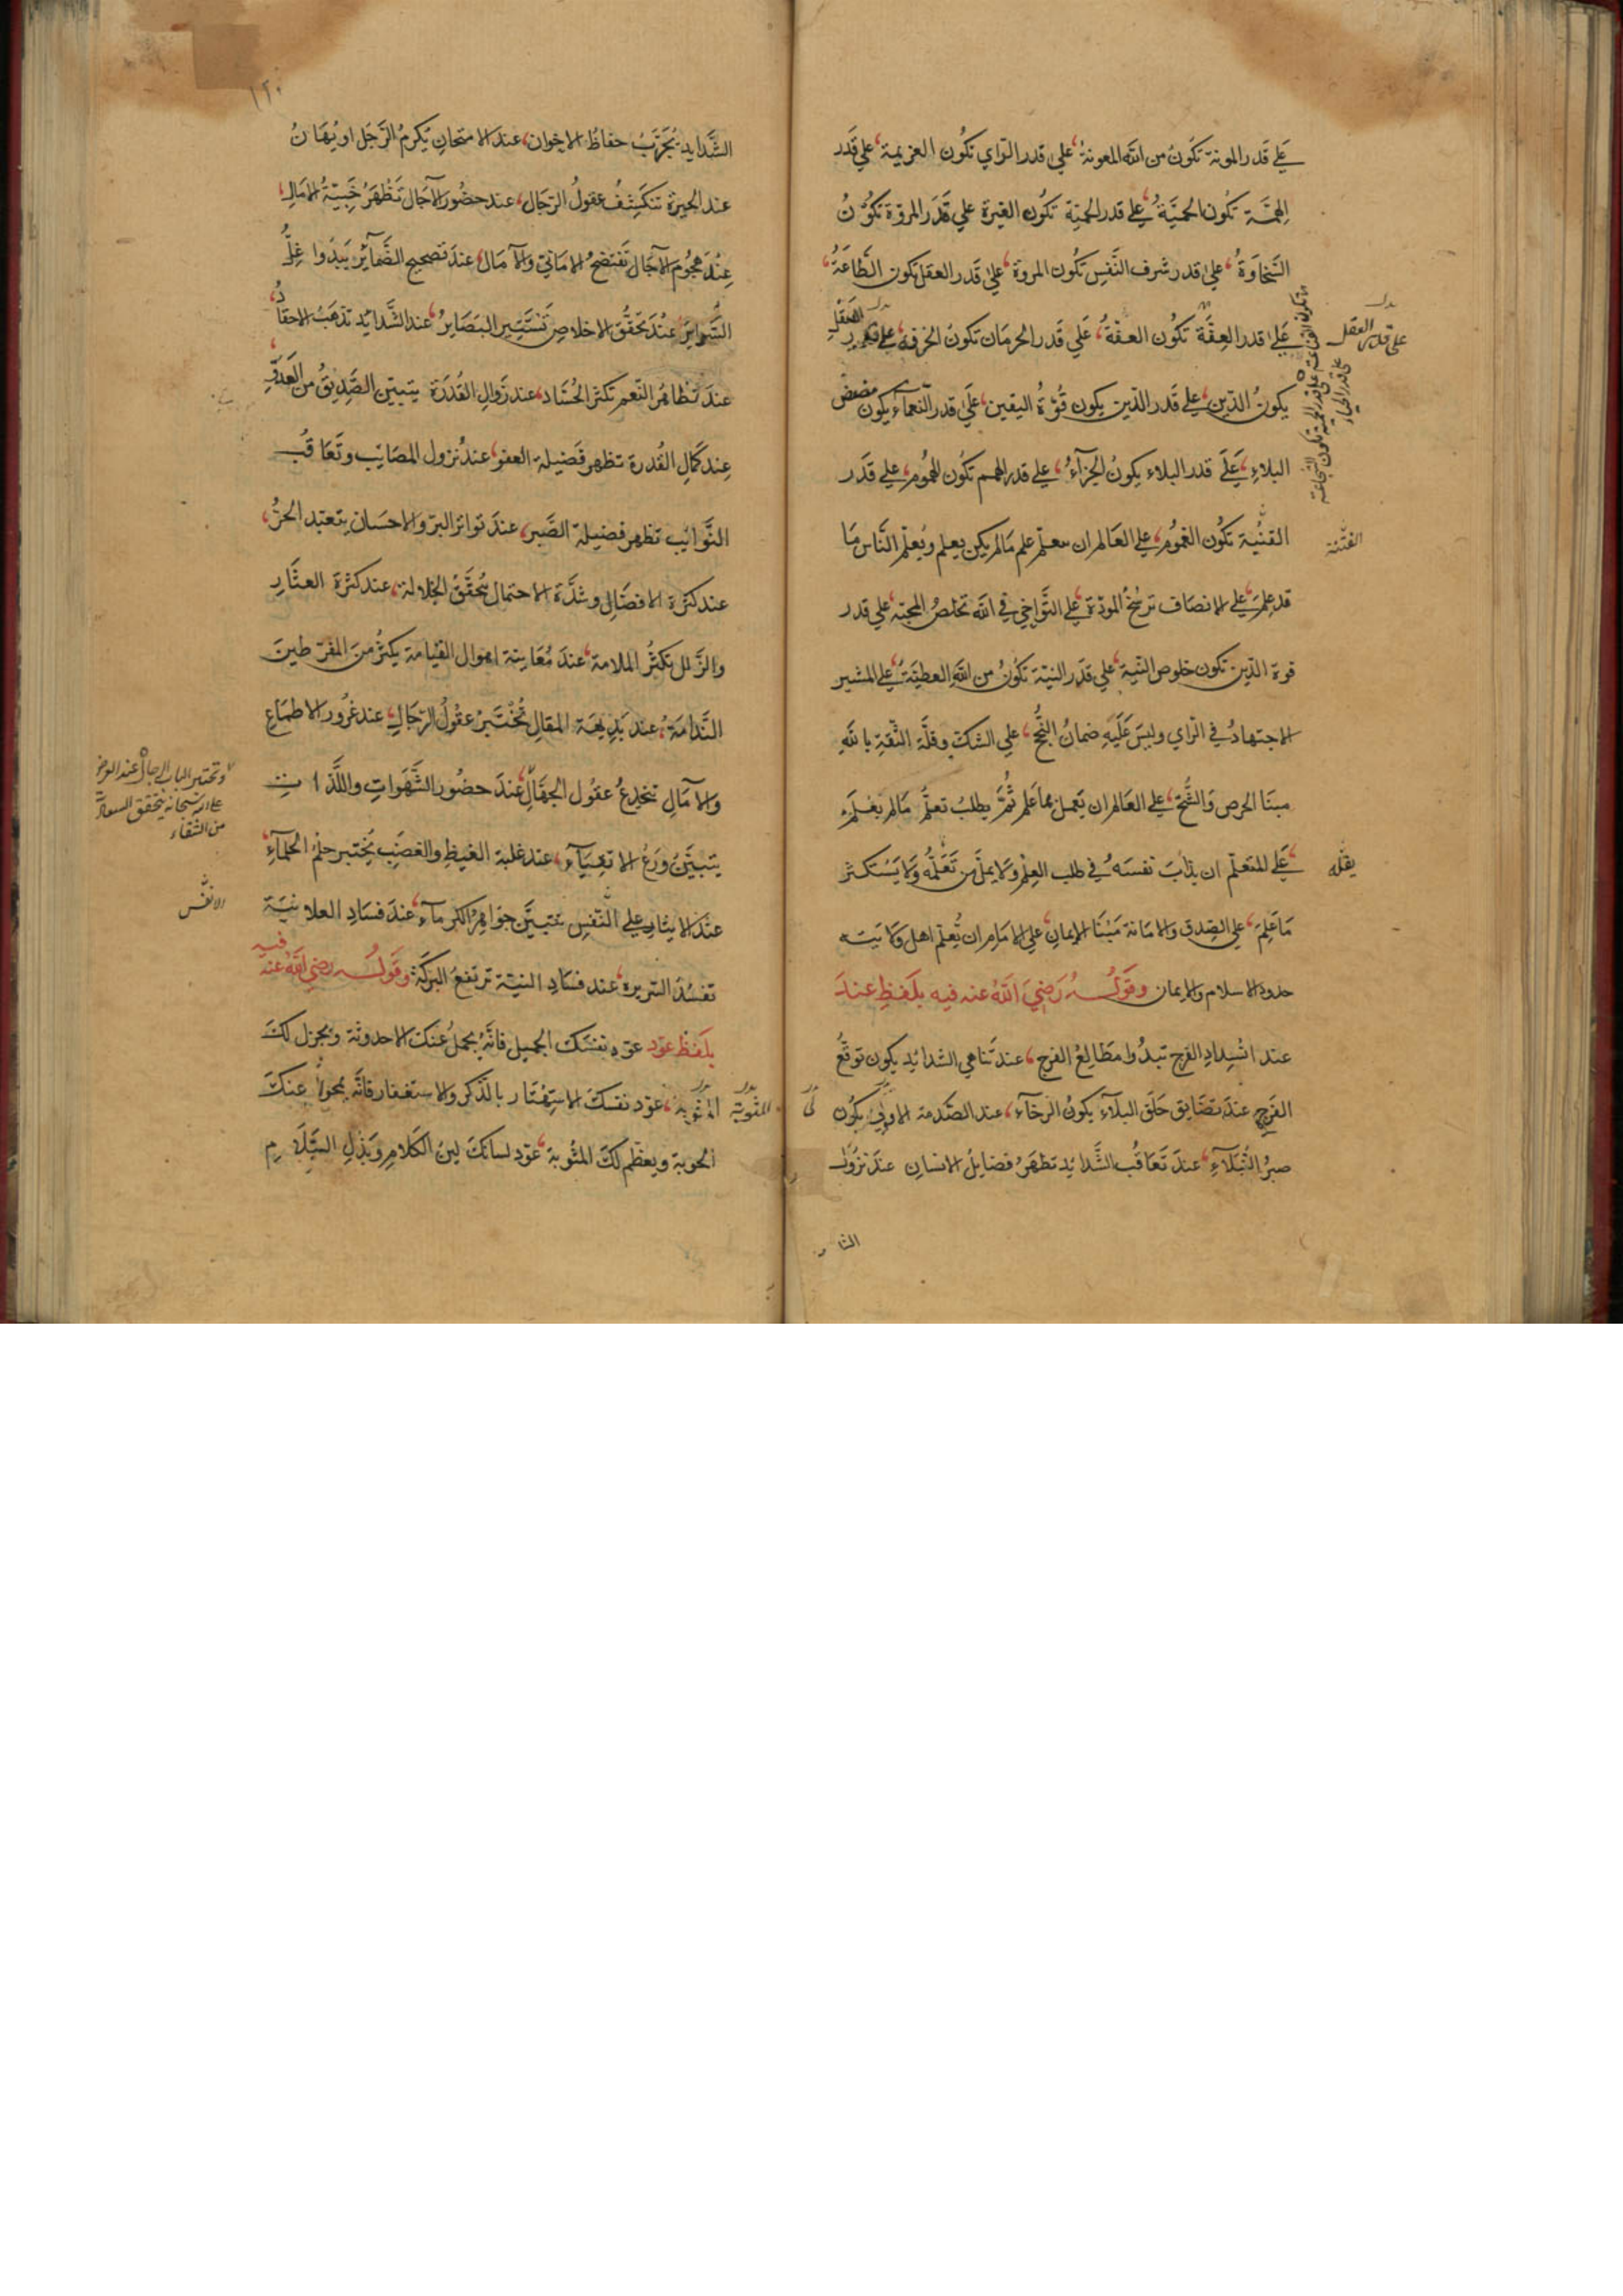 علي قدر المونة تكون من الله المعونة، علي قدر الراي تكون العزيمة، علي قدر
الهمة تكون الحمية، علي قدر الحمية تكون الغيرة علي قدر المروة تكون
السخاوة، علي قدر شرف النفس تكون المروة، علي قدر العقل تكون الطاعة،
علي قدر العفة تكون العفة، علي قدر الحرمان تكون الحرفة، علي قدر
علي قدر العقل
يكون الدين، علي قدر الدين يكون قوة اليقين، علي قدر النعماء يكون مضض
البلاء، علي قدر البلاء يكون الجزآء، علي قدر الهمم تكون الهموم، علي قدر
القنية تكون الغموم، علي العالم ان معلم علم مالم يكن يعلم ويعلم الناس ما
الفتنة
قد علم، علي الانصاف ترسخ المودة، علي التواخي في الله تخلص المحبة، علي قدر
قوة الدين تكون خلوص النية، علي قدر النية تكون من الله العطية، علي المشير
الاجتهاد في الراي وليس عليه ضمان النجح، علي الشك وقلة الثقة بالله
مبنا الحرص والشح، علي العالم ان يعمل بما علم ثم يطلب تعلم مالم يعلم
علي المتعلم ان يداب نفسه في طلب العلم ولا يمل من تعلمه ولا يستكثر
ما علم، علي الصدق والامانة مبنا الايمان، علي الامام ان تعلم اهل ولايته
حدود الاسلام والايمان وقوله رضي الله عنه فيه بلفظ عند
عند اشتداد الفرج تبدوا مطالع الفرج، عند تناهي الشدائد يكون توقع
الفرج، عند تضايق حلق البلآء يكون الرخآء، عند الصدمة الاولي يكون
صبر النبلآء، عند تعاقب الشدائد تظهر فضايل الانسان عند نزول
الشدايد يجرب حفاظ الاخوان، عند الامتحان يكرم الرجل او يهان
عند الحيرة تنكشف عقول الرجال، عند حضور الآجال تظهر خيبة الامال،
عند هجوم الآجال تفتضح الاماني والآمال، عند تصحيح الضمآئر يبدوا غل
السراير عند تحقق الاخلاص تستنير البصاير، عند الشدائد تذهب الاحقاد،
عند تظاهر النعم تكثر الحساد، عند زوال القدرة يتبين الصديق من العدو،
عند كمال القدرة تظهر فضيلة العفو، عند نزول المصايب وتعاقب
النوائب تظهر فضيلة الصبر، عند تواتر البر والاحسان يتعبد الحر،
عند كثرة الافضال وشدة الاحتمال تحقق الجلالة، عند كثرة العثار
والزلل تكثر الملامة، عند معاينة اهوال القيامة يكثر من المفرطين
الندامة، عند بديهة المقال تختبر عقول الرجال، عند غرور الاطماع
والآمال تنخدع عقول الجهال، عند حضور الشهوات واللذات
يتبين ورع الاتقيآء، عند غلبة الغيظ والغضب يختبر حلم الحلمآء،
من الشقاء
عند الايثار علي النفس تتبين جواهر الكرمآء، عند فساد العلانية
تفسد السريرة، عند فساد النية ترتفع البركة وقوله رضي الله عنه فيه
بلفظ عود عود نفسك الجميل فانه يجمل عنك الاحدوثة ويجزل لك
المثوبة، عود نفسك الاستهتار بالذكر والاستغفار فانه يمحوا عنك
المثوبة
الحوبة ويعظم لك المثوبة، عود لسانك لين الكلام وبذل السلام